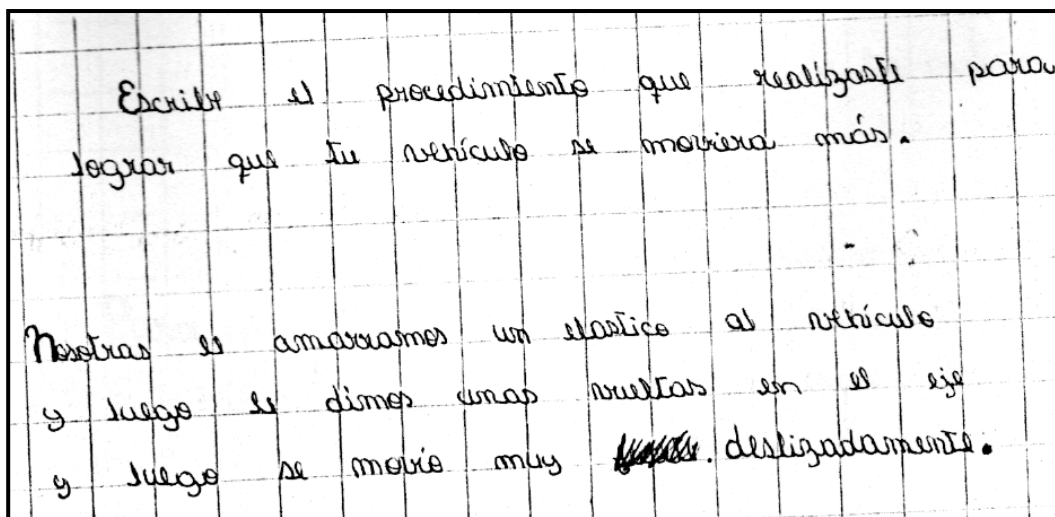 Escribe el procedimiento que realizaste para
lograr que tu vehículo se moviera más.
Nosotras le amarramos un elastico al vehículo
y luego le dimos unas vueltas en el eje
y luego se movío muy deslizadamente.